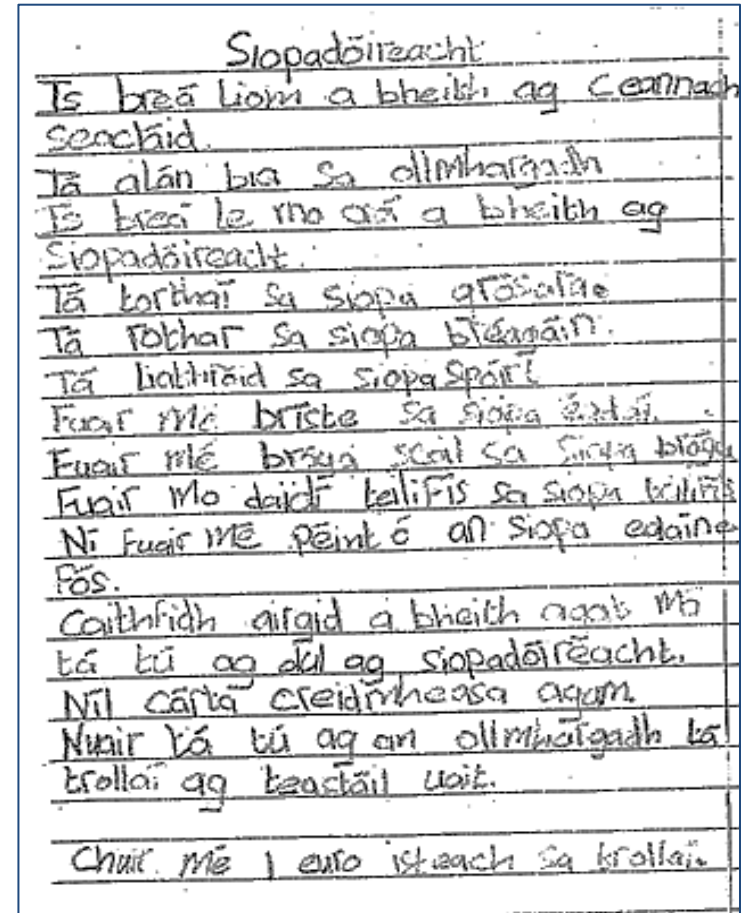 Siopadóireacht
Is breá liom a bheith ag ceannach
seacláid.
Tá alán bia sa ollmhargadh
Is breá le mo a bheith ag
siopadóireacht.
Tá torthaí sa siopa grósaíae
Tá rothar sa siopa
Tá liathróid sa siopa spóirt
Fuair mé bríste sa siopa éadaí.
Fuair mé scoil sa siopa bróga
Fuair mo daidí teilifís sa siopa teilifís
Ní fuair mé péint ó an siopa edaine
fós.
Caithfidh airgid a bheith agat má
tá tú ag dul ag siopadóireacht.
Níl cárta creidmheasa agam.
Nuair tá tú ag an ollmhargadh tá
trollaí ag teactáil uait.
Chuir mé 1 euro isteach sa trollaí.